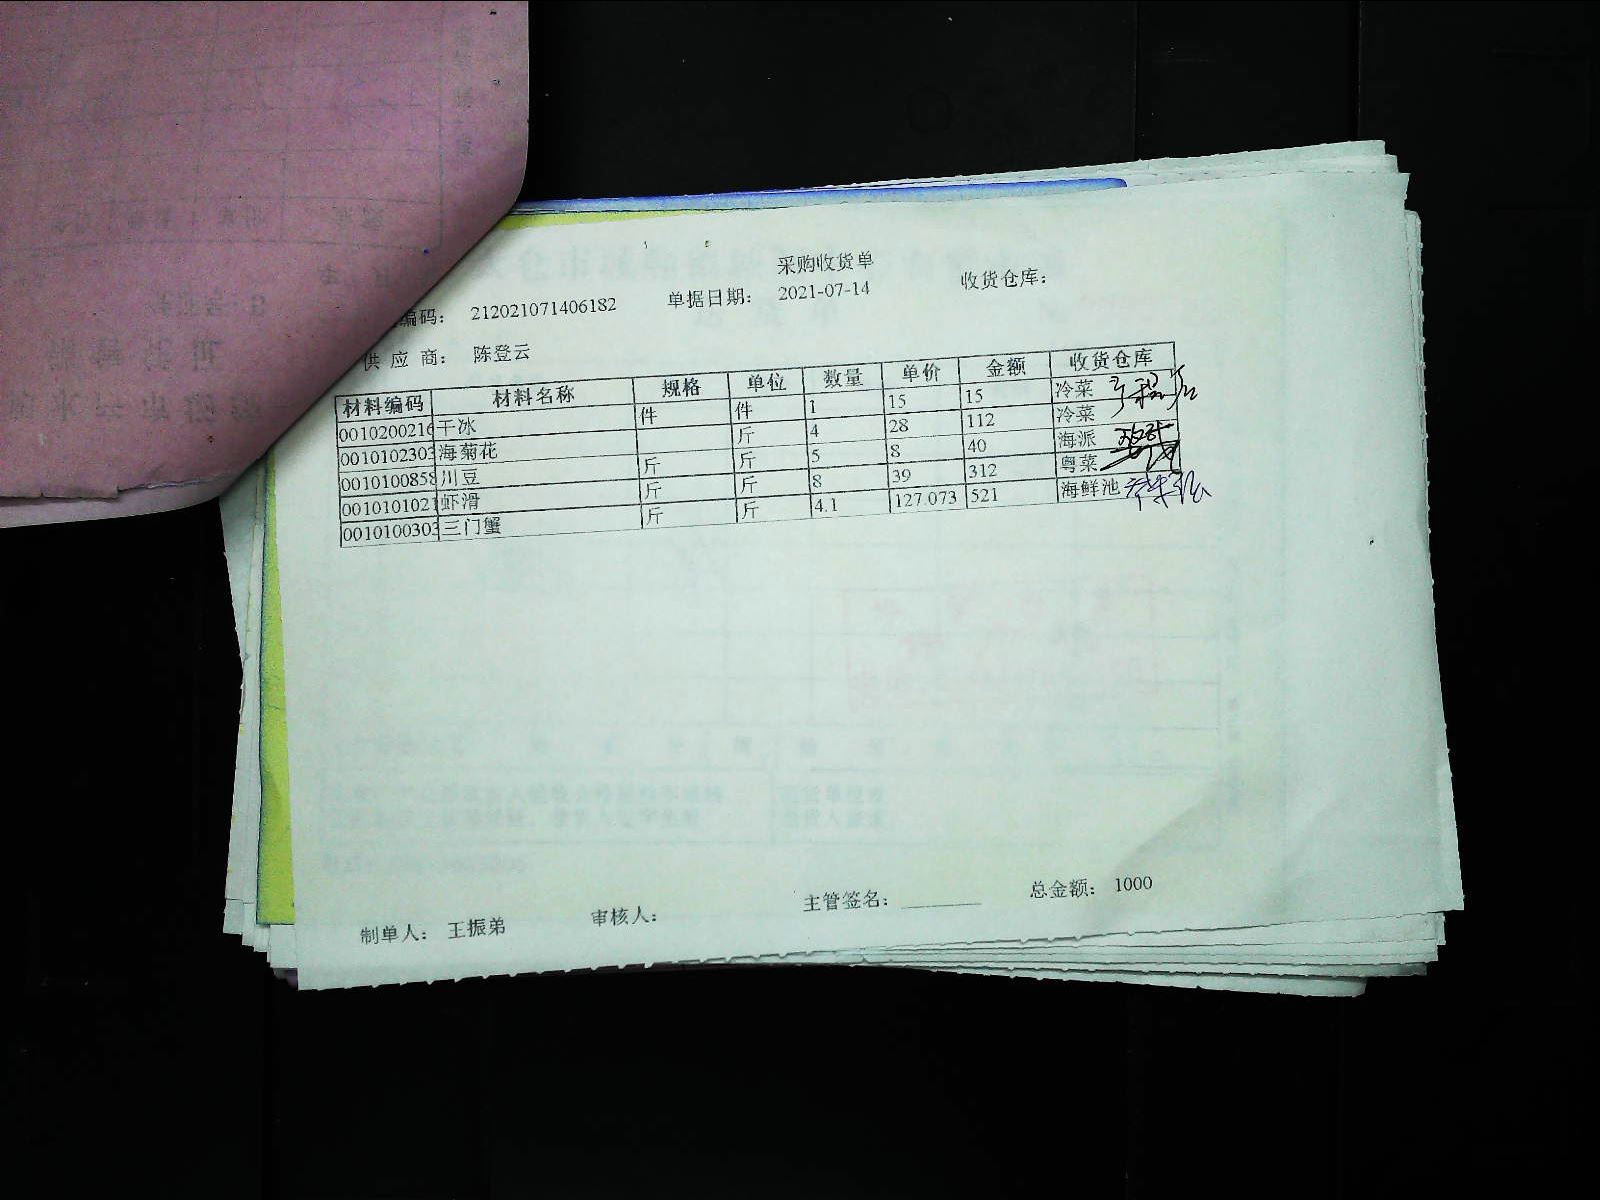 采购收货单
编码： 212021071406182 单据日期： 2021-07-14 收货仓库：
供应商： 陈登云
材料编码 材料名称 规格 单位 数量 单价 金额 收货仓库
0010200216 干冰 件 件 1 15 15 冷菜
0010102303 海菊花 斤 4 28 112 冷菜
0010100858 川豆 斤 斤 5 8 40 海派
0010101021 虾滑 斤 斤 8 39 312 粤菜
0010100303 三门蟹 斤 斤 4.1 127.073 521 海鲜池
制单人： 王振弟 审核人： 主管签名： 总金额： 1000